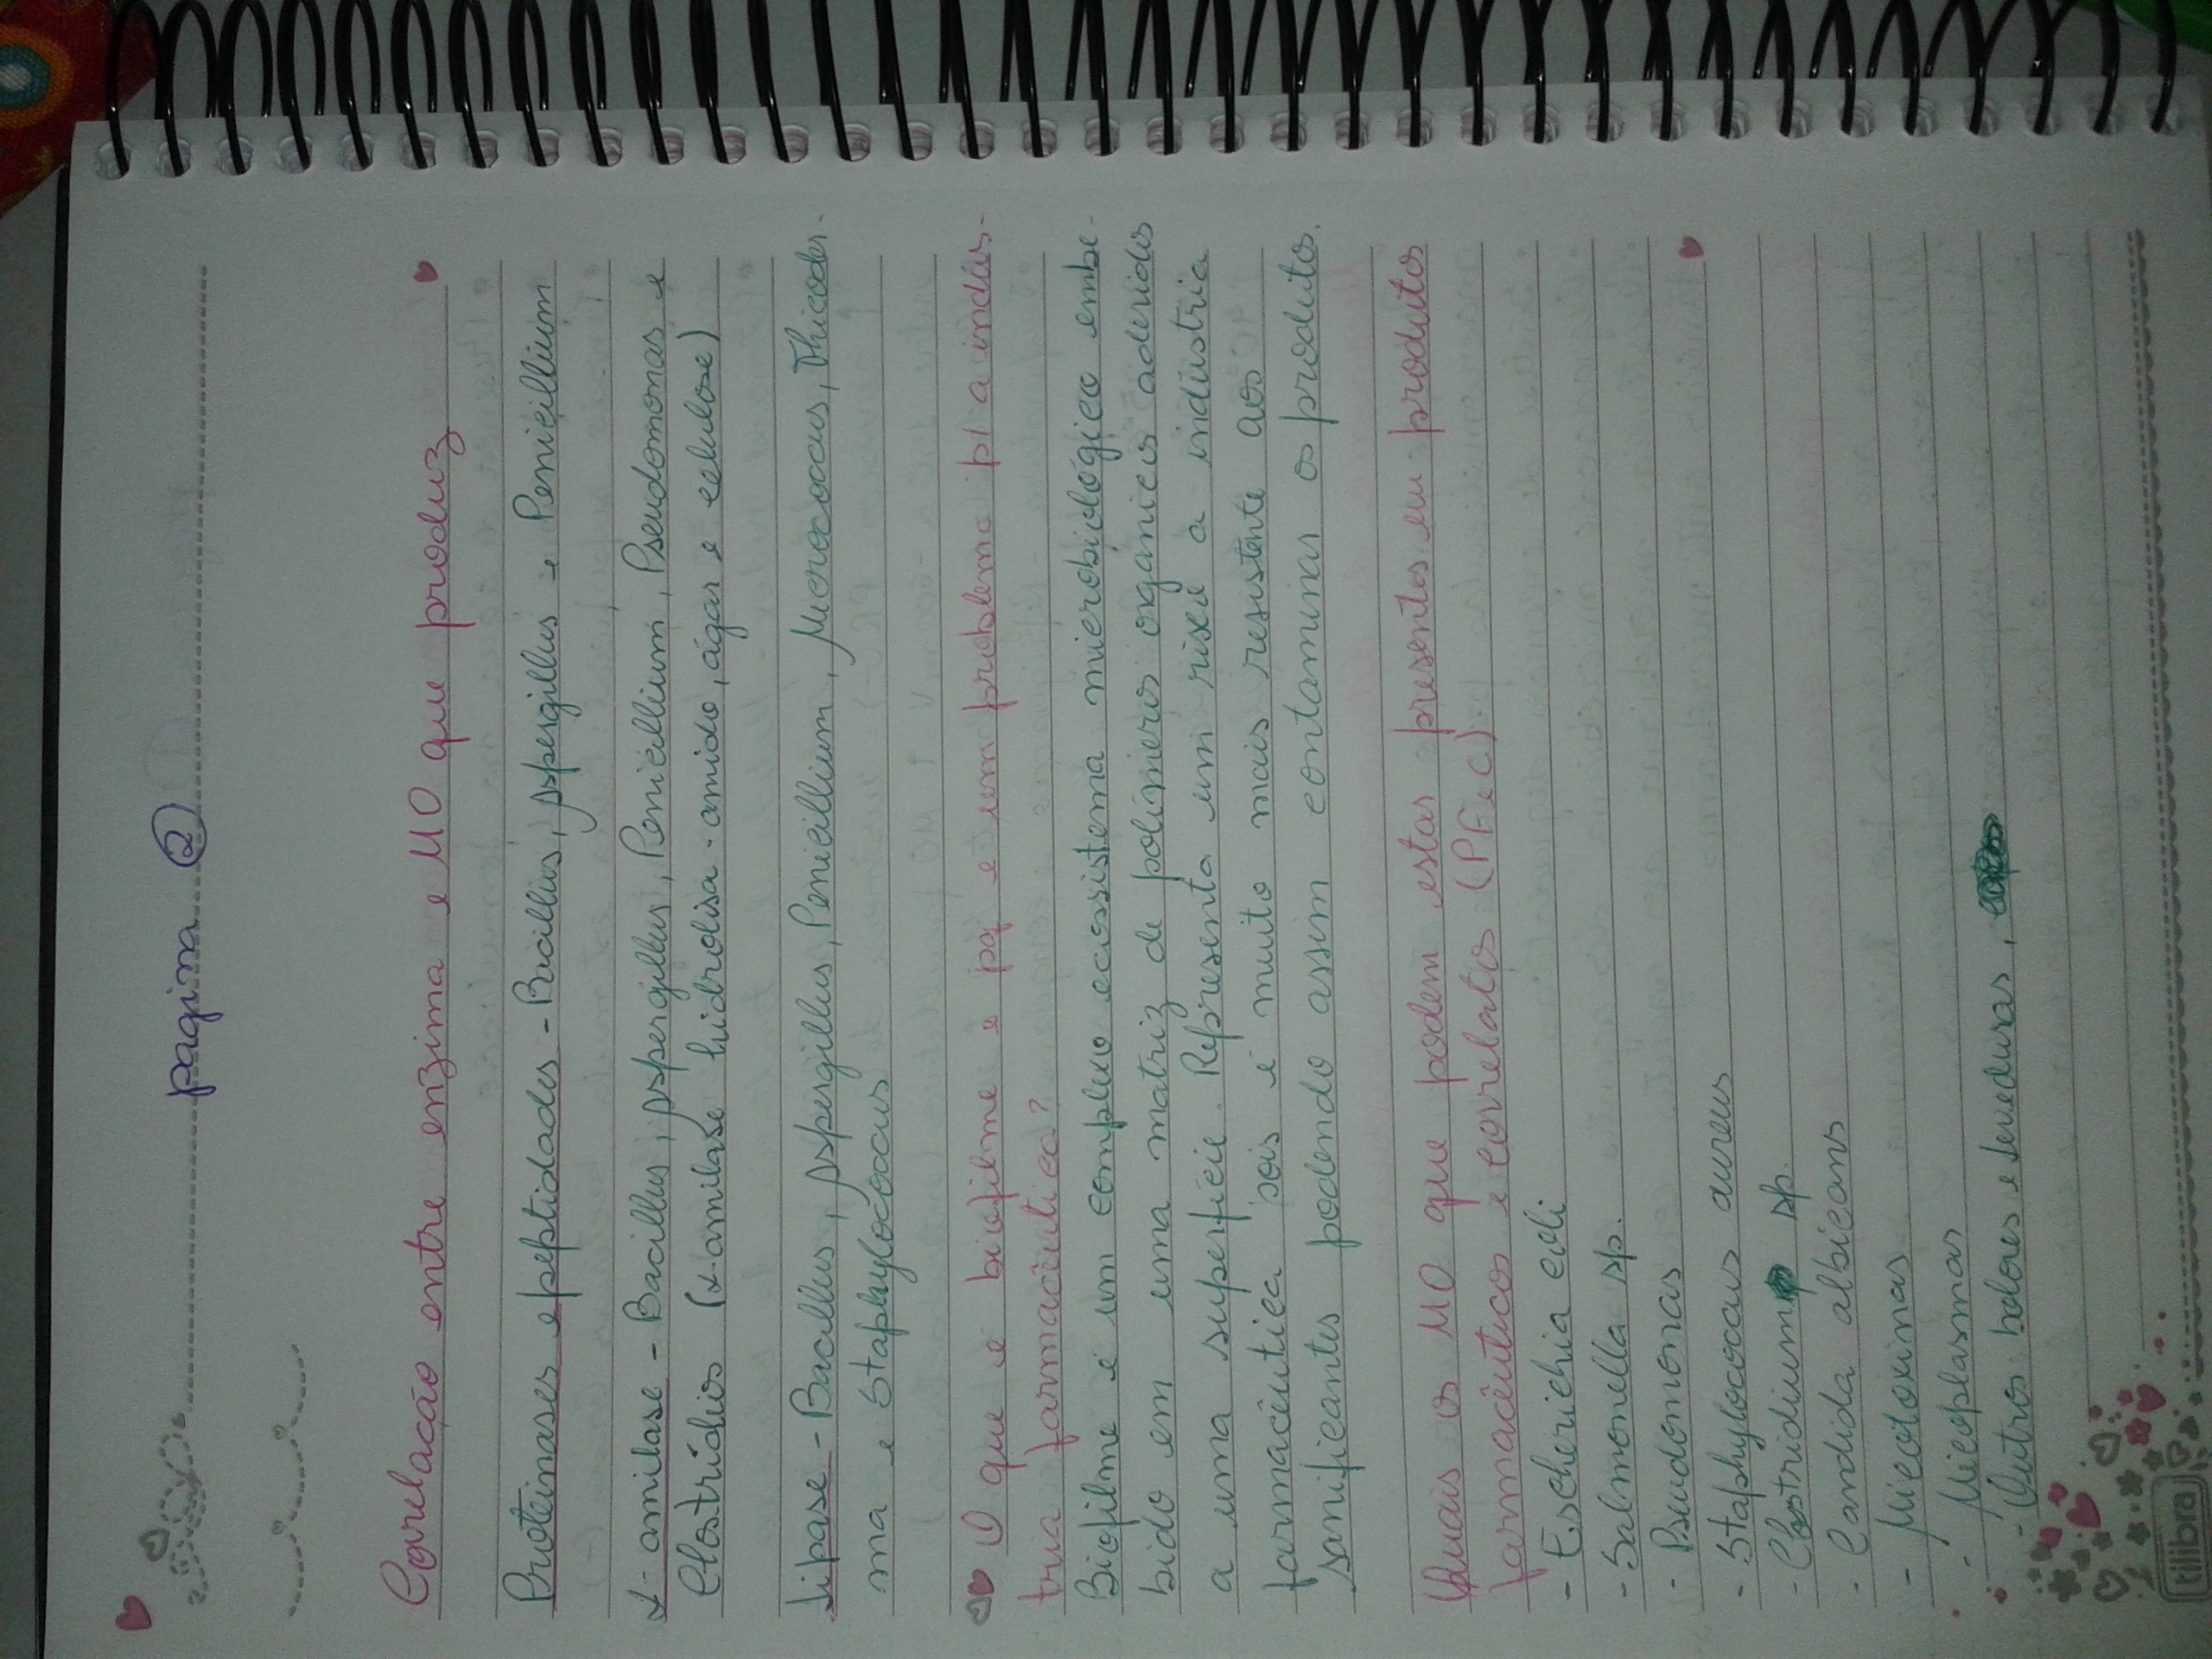 pagina 2
Corelação entre enzima e MO que produz
Proteinases e peptidades - Bacillus, Aspergillus e Penicillium
α- amilase - Bacillus, Aspergillus, Penicillium, Pseudomonas e
Clostrídios (α-amilase hidrolisa - amido, ágar e celulose)
Lipase - Bacillus, Aspergillus, Penicillium, Micrococcus, Thicoder-
ma e Staphylococcus
O que é biofilme e pq e um problema p/ a indús-
tria farmacêutica?
Biofilme é um compluo ecossistema microbiológico embe-
bido em uma matriz de polímeros orgânicos aderidos
a uma superfície. Representa um risco a indústria
farmacêutica pois é muito mais resistente aos
sanificantes podendo assim contaminar os produtos.
Quais os MO que podem estar presentes em produtos
farmacêuticos e correlatos (PF e C).
- Escherichia coli
- Salmonella sp.
- Pseudomonas
- Staphylococcus aureus
- Clostridium sp.
- Candida albicans
- Micotoxinas
- Micoplasmas
- Outros bolores e leveduras,
tilibra